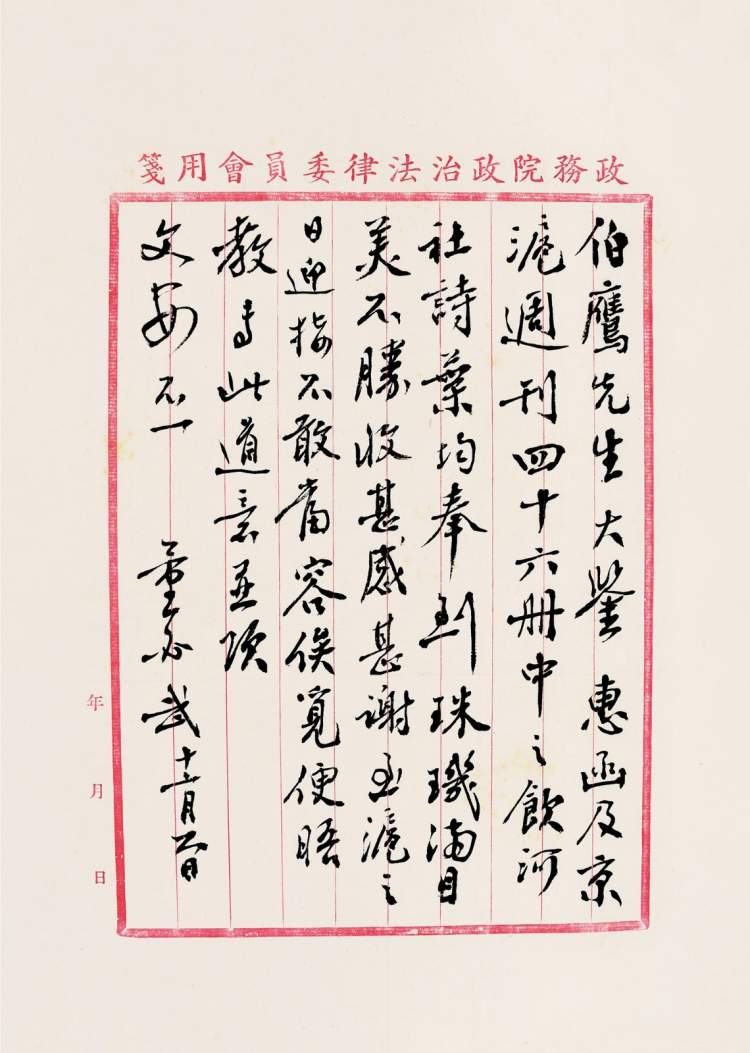 政務院政治法律委員會用箋
伯鷹先生大鑒 惠函及京
滬週刊四十六冊中之飲河
社詩葉均奉到珠璣滿目
美不勝收甚感甚謝至滬之
日迎梅不敢當容俟覓便晤
教專此道意並頌
文安不一 董必武十二月六日
年
月
日